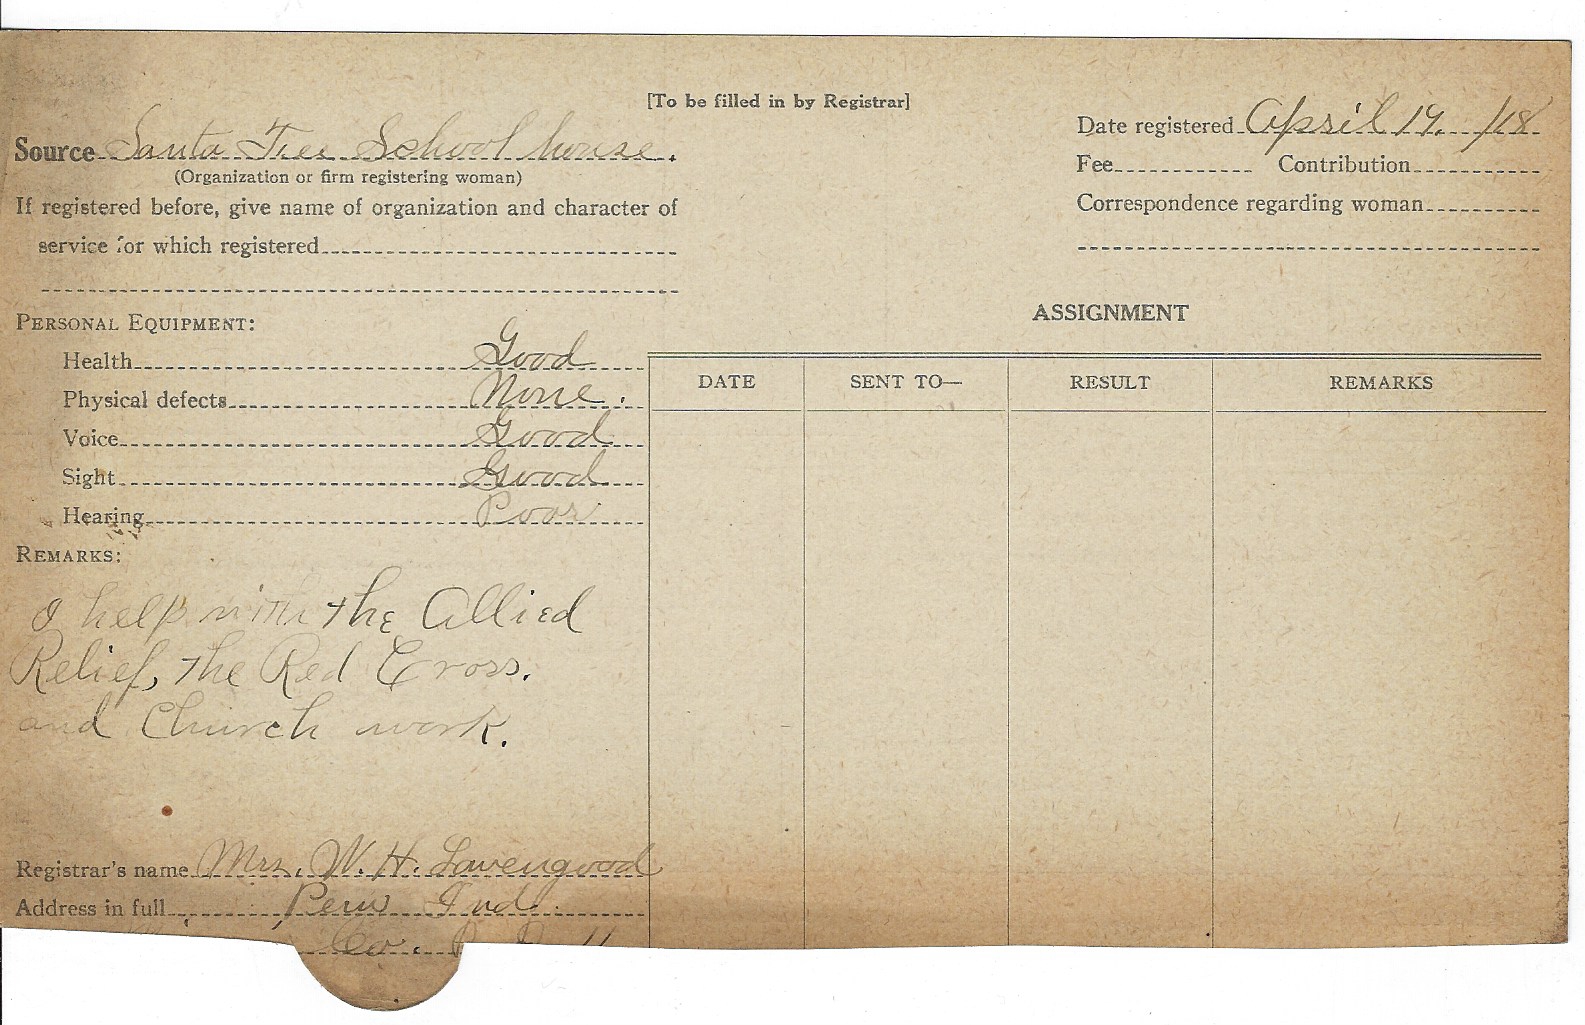 [To be filled in by Registrar]
Source Santa Fee School house.
(Organization or firm registering woman)
If registered before, give name of organization and character of
service for which registered
Date registered April 19. /18
Fee Contribution
Correspondence regarding woman
PERSONAL EQUIPMENT:
Health Good
Physical defects None.
Voice Good
Sight Good
Hearing Poor
REMARKS:
I help with the Allied
Relief, the Red Cross.
and Church work.
Registrar's name Mrs. W. H. Lavengood
Address in full Peru Ind.
Co.
ASSIGNMENT
DATE SENT TO— RESULT REMARKS